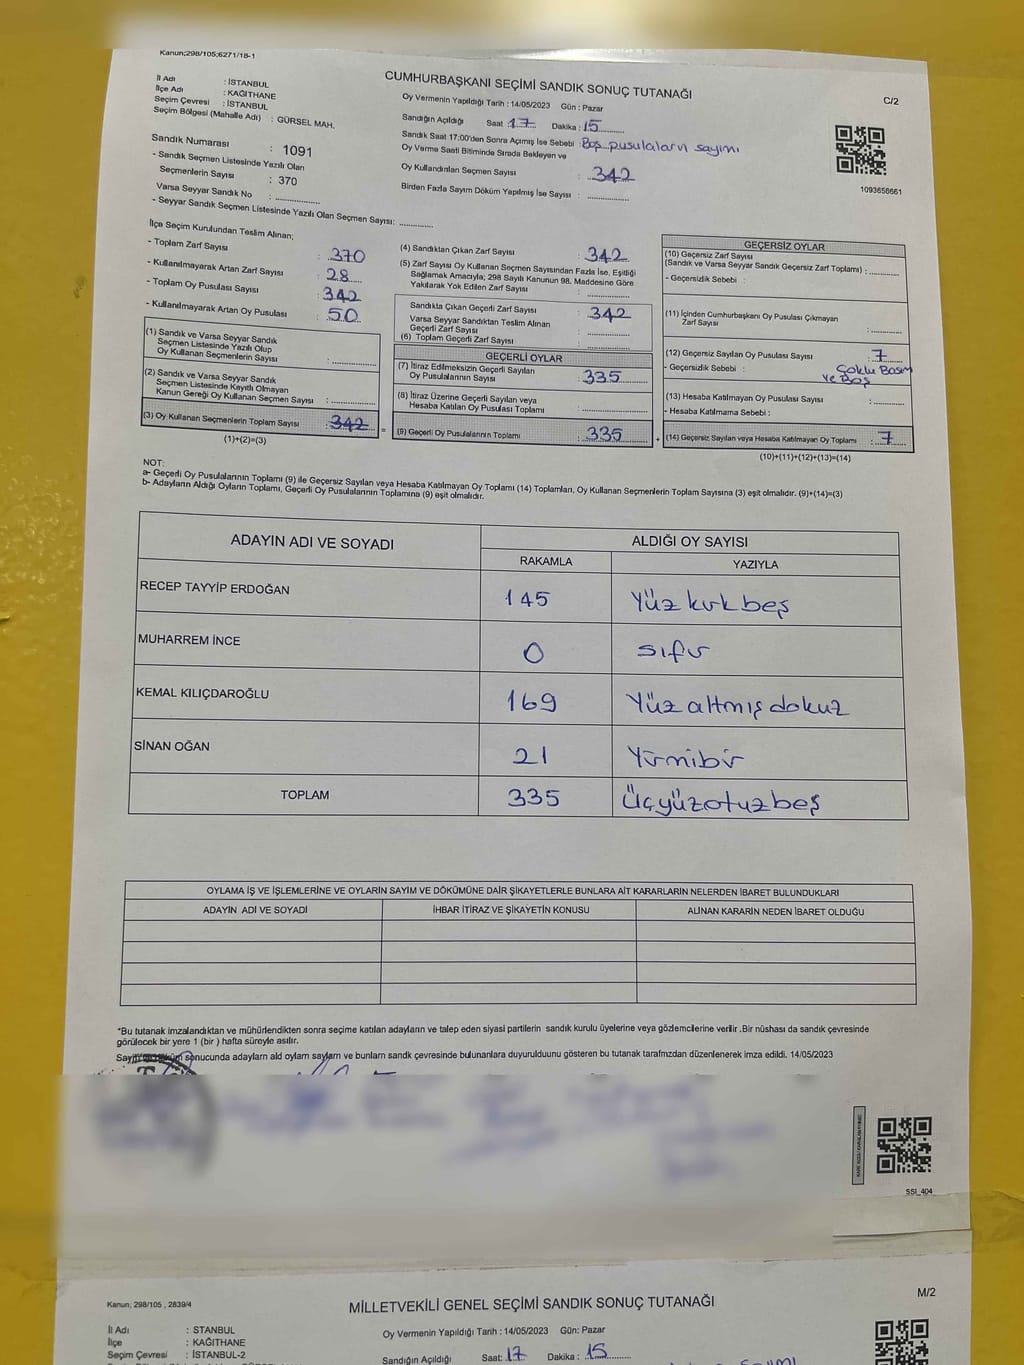 Kanun;298/105;6271/18-1
CUMHURBAŞKANI SEÇİMİ SANDIK SONUÇ TUTANAĞI
C/2
İl Adı : İSTANBUL
İlçe Adı : KAĞITHANE
Seçim Çevresi : İSTANBUL
Seçim Bölgesi (Mahalle Adı) : GÜRSEL MAH.
Sandık Numarası : 1091
- Sandık Seçmen Listesinde Yazılı Olan
Seçmenlerin Sayısı : 370
Varsa Seyyar Sandık No : ............
- Seyyar Sandık Seçmen Listesinde Yazılı Olan Seçmen Sayısı: ............
Oy Vermenin Yapıldığı Tarih : 14/05/2023 Gün : Pazar
Sandığın Açıldığı Saat 17 Dakika : 15
Sandık Saat 17:00'den Sonra Açımış İse Sebebi : Boş pusulaların sayımı
Oy Verme Saati Bitiminde Sırada Bekleyen ve
Oy Kullandırılan Seçmen Sayısı : 342
Birden Fazla Sayım Döküm Yapılmış İse Sayısı : ............
1093656661
İlçe Seçim Kurulundan Teslim Alınan;
- Toplam Zarf Sayısı : 370
- Kullanılmayarak Artan Zarf Sayısı : 28
- Toplam Oy Pusulası Sayısı : 342
- Kullanılmayarak Artan Oy Pusulası : 50
(1) Sandık ve Varsa Seyyar Sandık
Seçmen Listesinde Yazılı Olup
Oy Kullanan Seçmenlerin Sayısı : ............
(2) Sandık ve Varsa Seyyar Sandık
Seçmen Listesinde Kayıtlı Olmayan
Kanun Gereği Oy Kullanan Seçmen Sayısı : ............
(3) Oy Kullanan Seçmenlerin Toplam Sayısı : 342
(1)+(2)=(3)
(4) Sandıktan Çıkan Zarf Sayısı : 342
(5) Zarf Sayısı Oy Kullanan Seçmen Sayısından Fazla İse, Eşitliği
Sağlamak Amacıyla; 298 Sayılı Kanunun 98. Maddesine Göre
Yakılarak Yok Edilen Zarf Sayısı : ............
Sandıkta Çıkan Geçerli Zarf Sayısı : 342
Varsa Seyyar Sandıktan Teslim Alınan
Geçerli Zarf Sayısı : ............
(6) Toplam Geçerli Zarf Sayısı : ............
GEÇERLİ OYLAR
(7) İtiraz Edilmeksizin Geçerli Sayılan
Oy Pusulalarının Sayısı : 335
(8) İtiraz Üzerine Geçerli Sayılan veya
Hesaba Katılan Oy Pusulası Toplamı : ............
(9) Geçerli Oy Pusulalarının Toplamı : 335
GEÇERSİZ OYLAR
(10) Geçersiz Zarf Sayısı
(Sandık ve Varsa Seyyar Sandık Geçersiz Zarf Toplamı) : ............
- Geçersizlik Sebebi :
(11) İçinden Cumhurbaşkanı Oy Pusulası Çıkmayan
Zarf Sayısı : ............
(12) Geçersiz Sayılan Oy Pusulası Sayısı : 7
- Geçersizlik Sebebi : Çoklu Basım
ve Boş
(13) Hesaba Katılmayan Oy Pusulası Sayısı : ............
- Hesaba Katılmama Sebebi :
(14) Geçersiz Sayılan veya Hesaba Katılmayan Oy Toplamı : 7
(10)+(11)+(12)+(13)=(14)
NOT:
a- Geçerli Oy Pusulalarının Toplamı (9) ile Geçersiz Sayılan veya Hesaba Katılmayan Oy Toplamı (14) Toplamları, Oy Kullanan Seçmenlerin Toplam Sayısına (3) eşit olmalıdır. (9)+(14)=(3)
b- Adayların Aldığı Oyların Toplamı, Geçerli Oy Pusulalarının Toplamına (9) eşit olmalıdır.
ADAYIN ADI VE SOYADI ALDIĞI OY SAYISI
RAKAMLA YAZIYLA
RECEP TAYYİP ERDOĞAN 145 Yüz kırk beş
MUHARREM İNCE 0 sıfır
KEMAL KILIÇDAROĞLU 169 Yüz altmış dokuz
SİNAN OĞAN 21 Yirmibir
TOPLAM 335 Üçyüzotuzbeş
OYLAMA İŞ VE İŞLEMLERİNE VE OYLARIN SAYIM VE DÖKÜMÜNE DAİR ŞİKAYETLERLE BUNLARA AİT KARARLARIN NELERDEN İBARET BULUNDUKLARI
ADAYIN ADI VE SOYADI İHBAR İTİRAZ VE ŞİKAYETİN KONUSU ALINAN KARARIN NEDEN İBARET OLDUĞU
*Bu tutanak imzalandıktan ve mühürlendikten sonra seçime katılan adayların ve talep eden siyasi partilerin sandık kurulu üyelerine veya gözlemcilerine verilir .Bir nüshası da sandık çevresinde
görülecek bir yere 1 (bir ) hafta süreyle asılır.
sonucunda adayların ald oyların sayların ve bunların sandk çevresinde bulunanlara duyurulduunu gösteren bu tutanak tarafmzdan düzenlenerek imza edildi. 14/05/2023
SSI_404
Kanun; 298/105 , 2839/4
MİLLETVEKİLİ GENEL SEÇİMİ SANDIK SONUÇ TUTANAĞI
M/2
İl Adı : STANBUL
İlçe : KAĞITHANE
Seçim Çevresi : İSTANBUL-2
Oy Vermenin Yapıldığı Tarih : 14/05/2023 Gün: Pazar
Sandığın Açıldığı Saat: 17 Dakika : 15